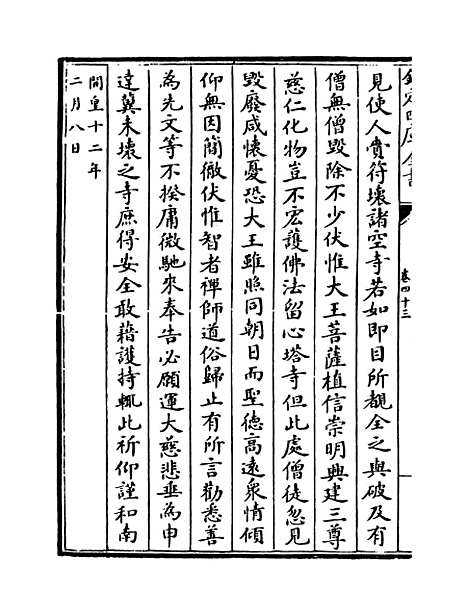 卷四十三
見使人賫符壞諸空寺若如即目所覩全之與破及有
僧無僧毀除不少伏惟大王菩薩植信崇明興建三尊
慈仁化物豈不宏護佛法留心塔寺但此處僧徒忽見
毀廢咸懷憂恐大王雖照同朝日而聖德高遠衆情傾
仰無因簡徹伏惟智者禪師道俗歸止有所言勸悉善
為先文等不揆庸微馳來奉告必願運大慈悲垂為申
達冀未壞之寺庶得安全敢藉護持輒此祈仰謹和南
間皇十二年
二月八日